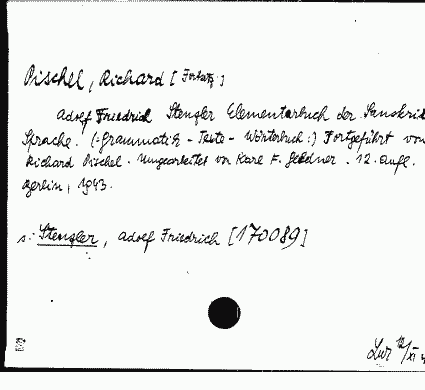 Pischel, Richard [Forts.]
Adolf Friedrich Stenzler Elementarbuch der Sanskrit
Sprache. (:Grammatik - Texte - Wörterbuch:) Fortgeführt von
Richard Pischel. Umgearbeitet von Karl F. Geldner. 12. Aufl.
Berlin, 1943.
s: Stenzler, Adolf Friedrich [170089]